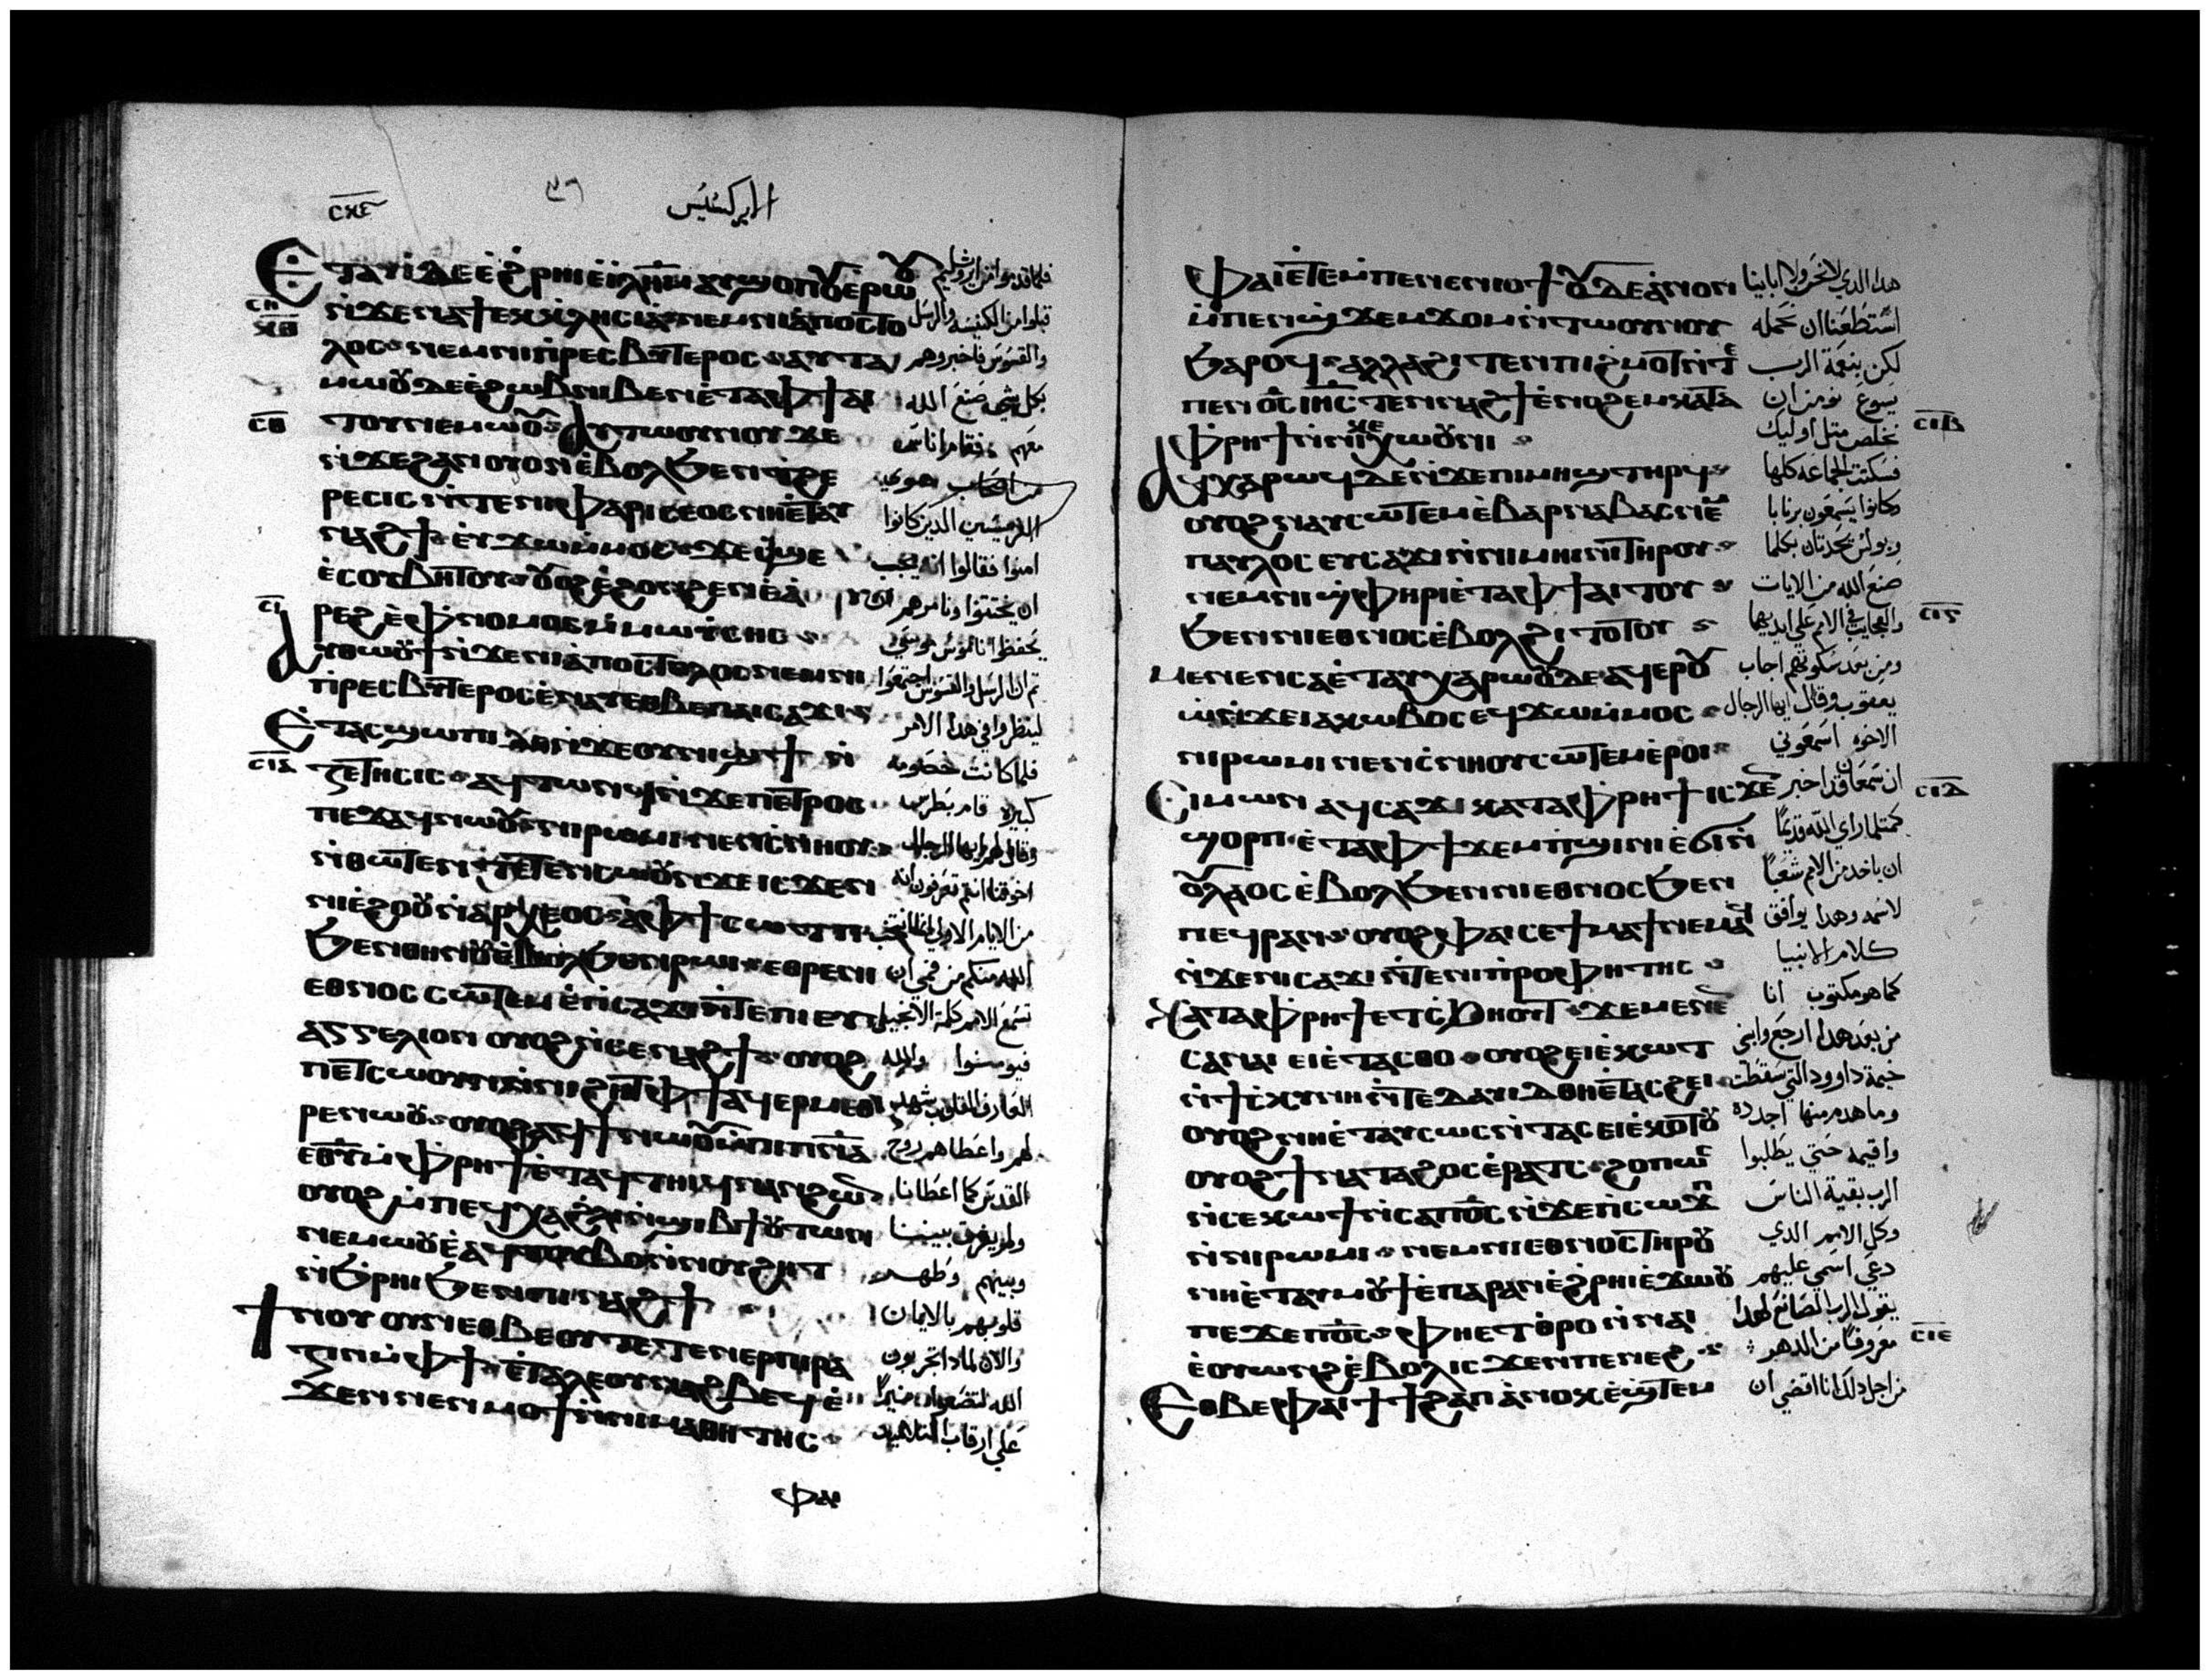 ⲥⲝⲉ
الابركسيس
Ⲉⲧⲁⲩⲓ̀ ⲇⲉ ⲉ̀ϩⲣⲏⲓ ⲉ̀ⲓⲗⲏⲙ ⲁⲩϣⲟⲡⲟⲩ ⲉ̀ⲣⲱⲟⲩ
ⲛ̀ϫⲉ ⲛⲁ ϯⲉⲕⲕⲗⲏⲥⲓⲁ ⲛⲉⲙ ⲛⲓⲁ̀ⲡⲟⲥⲧⲟ
ⲗⲟⲥ ⲛⲉⲙ ⲛⲓⲡⲣⲉⲥⲃⲩⲧⲉⲣⲟⲥ ⲁⲩⲧⲁ
ⲙⲱⲟⲩ ⲇⲉ ⲉ̀ϩⲱⲃ ⲛⲓⲃⲉⲛ ⲉ̀ⲧⲁ ⲫϯ ⲁⲓ
ⲧⲟⲩ ⲛⲉⲙⲱⲟⲩ Ⲁⲩⲧⲱⲟⲩⲛⲟⲩ ⲇⲉ
ⲛ̀ϫⲉ ϩⲁⲛⲟⲩⲟⲛ ⲉ̀ⲃⲟⲗ ϧⲉⲛ ϯϩⲉ
ⲣⲉⲥⲓⲥ ⲛ̀ⲧⲉ ⲛⲓⲫⲁⲣⲓⲥⲉⲟⲥ ⲛⲏⲉ̀ⲧⲁⲩ
ⲛⲁϩϯ ⲉⲩϫⲱ ⲙ̀ⲙⲟⲥ ϫⲉ ⲡ̀ϣⲉ
ⲉ̀ⲥⲟⲩⲃⲏⲧⲟⲩ ⲟⲩⲟϩ ⲉ̀ϩⲟⲛϩⲉⲛ ⲉ̀ⲁ̀
ⲣⲉϩ ⲉ̀ⲫⲛⲟⲙⲟⲥ ⲙ̀ⲙⲱⲩ̀ⲥⲏⲥ
Ⲁⲩⲑⲱⲟⲩϯ ⲛ̀ϫⲉ ⲛⲓⲁ̀ⲡⲟⲥⲧⲟⲗⲟⲥ ⲛⲉⲙ ⲛⲓ
ⲡⲣⲉⲥⲃⲩⲧⲉⲣⲟⲥ ⲉ̀ⲛⲁⲩ ⲉⲑⲃⲉ ⲡⲁⲓⲥⲁϫⲓ
Ⲉⲧⲁⲥϣⲱⲡⲓ ⲇⲉ ⲛ̀ϫⲉ ⲟⲩⲛⲓϣϯ ⲛ̀
ⲍⲉⲧⲏⲥⲓⲥ ⲁϥⲧⲱⲛϥ ⲛ̀ϫⲉ ⲡⲉⲧⲣⲟⲥ
ⲡⲉϫⲁϥ ⲛⲱⲟⲩ ⲛⲓⲣⲱⲙⲓ ⲛⲉⲛⲥⲛⲏⲟⲩ
ⲛ̀ⲑⲱⲧⲉⲛ ⲧⲉⲧⲉⲛⲥⲱⲟⲩⲛ ϫⲉ ⲓⲥϫⲉⲛ
ⲛⲓⲉ̀ϩⲟⲟⲩ ⲛ̀ⲁⲣⲭⲉⲟⲥ ⲁ̀ ⲫϯ ⲥⲱⲧⲡ
ϧⲉⲛ ⲑⲏⲛⲟⲩ ⲉ̀ⲃⲟⲗ ϧⲉⲛ ⲣⲱⲓ ⲉⲑⲣⲉ ⲛⲓ
ⲉⲑⲛⲟⲥ ⲥⲱⲧⲉⲙ ⲉ̀ⲡⲥⲁϫⲓ ⲛ̀ⲧⲉ ⲡⲓⲉⲩ
ⲁⲅⲅⲉⲗⲓⲟⲛ ⲟⲩⲟϩ ⲛ̀ⲥⲉⲛⲁϩϯ ⲟⲩⲟϩ
ⲡⲉⲧⲥⲱⲟⲩⲛ ⲛ̀ⲛⲓϩⲏⲧ ⲫϯ ⲁϥⲉⲣⲙⲉⲑ
ⲣⲉ ⲛⲱⲟⲩ ⲟⲩⲟϩ ⲁϥϯ ⲛⲱⲟⲩ ⲙ̀ⲡⲓⲡⲛⲁ
ⲉⲑⲩ ⲙ̀ⲫⲣⲏϯ ⲉ̀ⲧⲁϥⲧⲏⲓϥ ⲛⲁⲛ ϩⲱⲛ
ⲟⲩⲟϩ ⲙ̀ⲡⲉϥⲭⲁ ϩ̀ⲗⲓ ⲛ̀ϣⲓⲃϯ ⲟⲩⲧⲱⲛ
ⲛⲉⲙⲱⲟⲩ ⲉ̀ⲁϥⲧⲟⲩⲃⲟ ⲛ̀ⲛⲟⲩϩⲏⲧ
ⲛ̀ϧⲣⲏⲓ ϧⲉⲛ ⲡⲓⲛⲁϩϯ
Ϯⲛⲟⲩ ⲟⲩⲛ ⲉⲑⲃⲉ ⲟⲩ ⲧⲉⲧⲉⲛⲉⲣⲡⲓⲣⲁ
ⲍⲓⲛ ⲙ̀ⲫϯ ⲉ̀ⲧⲁⲗⲉ ⲟⲩⲛⲁϩⲃⲉϥ ⲉ̀
ϫⲉⲛ ⲛⲉⲛⲙⲟϯ ⲛ̀ⲛⲓⲙⲁⲑⲏⲧⲏⲥ
ⲫⲁⲓ
ⲥⲏ
ⲝⲑ
ⲥⲑ
ⲥⲓ
ⲥⲓⲁ
فلما قدموا من ايروشليم
قبلوا من الكنيسة والرسل
والقسوس فاخبروهم
بكل شي صنع الله
معهم فقاموا ناس
الفريسيين الدين كانوا
امنوا فقالوا انه يجب
ان يختتنوا ونامرهم ان
يحفظوا ناموس موسي
تم ان الرسل والقسوس اجتمعوا
لينظروا في هدا الامر
فلما كانت خصومه
كبيره قام بطرس
وقال لهم ايها الرجال
اخوتنا انتم تعرفون انه
من الايام الاولي
الله منكم من فمي ان
تسمع الامم كلمة الانجيل
فيومنوا والله
العارف القلوب شهد
لهم واعطاهم روح
القدس كما اعطانا
ولم يفرق بيننا
وبينهم وطهر
قلوبهم بالايمان
والان لمادا تجربون
الله لتضعوا نيراً
علي ارقاب التلاميد
Ⲫⲁⲓ ⲉ̀ⲧⲉ ⲙ̀ⲡⲉ ⲛⲉⲛⲓⲟϯ ⲟⲩⲇⲉ ⲁ̀ⲛⲟⲛ
ⲙ̀ⲡⲉⲛϣϫⲉⲙϫⲟⲙ ⲛ̀ⲧⲱⲟⲩⲛⲟⲩ
ϧⲁⲣⲟϥ ⲁⲗⲗⲁ ϩⲓⲧⲉⲛ ⲡⲓϩⲙⲟⲧ ⲛ̀ⲧⲉ
ⲡⲉⲛⲟ̅ⲥ̅ ⲓⲏ̅ⲥ̅ ⲧⲉⲛⲛⲁϩϯ ⲉ̀ⲛⲟϩⲉⲙ ⲕⲁⲧⲁ
ⲫⲣⲏϯ ⲛ̀ⲛⲓⲕⲉⲭⲱⲟⲩⲛⲓ
Ⲁϥⲭⲁⲣⲱϥ ⲇⲉ ⲛ̀ϫⲉ ⲡⲓⲙⲏϣ ⲧⲏⲣϥ
ⲟⲩⲟϩ ⲛⲁⲩⲥⲱⲧⲉⲙ ⲉ̀ⲃⲁⲣⲛⲁⲃⲁⲥ ⲛⲉⲙ
ⲡⲁⲩⲗⲟⲥ ⲉⲩⲥⲁϫⲓ ⲛ̀ⲛⲓⲙⲏⲓⲛⲓ ⲧⲏⲣⲟⲩ
ⲛⲉⲙ ⲛⲓϣ̀ⲫⲏⲣⲓ ⲉ̀ⲧⲁ ⲫϯ ⲁⲓⲧⲟⲩ
ϧⲉⲛ ⲛⲓⲉⲑⲛⲟⲥ ⲉ̀ⲃⲟⲗ ϩⲓⲧⲟⲧⲟⲩ
Ⲙⲉⲛⲉⲛⲥⲁ ⲉ̀ⲧⲁⲩⲭⲁⲣⲱⲟⲩ ⲇⲉ ⲁϥⲉⲣⲟⲩⲱ̀
ⲛ̀ϫⲉ ⲓⲁⲕⲱⲃⲟⲥ ⲉϥϫⲱ ⲙ̀ⲙⲟⲥ
ⲛⲓⲣⲱⲙⲓ ⲛⲉⲛⲥ̀ⲛⲏⲟⲩ ⲥⲱⲧⲉⲙ ⲉ̀ⲣⲟⲓ
Ⲥⲓⲙⲱⲛ ⲁϥⲥⲁϫⲓ ⲕⲁⲧⲁ ⲫⲣⲏϯ ⲓⲥϫⲉⲛ
ϣⲟⲣⲡ ⲉ̀ⲧⲁ ⲫϯ ϫⲉⲙⲡϣⲓⲛⲓ ⲉ̀ϭⲓ ⲛ̀
ⲟⲩⲗⲁⲟⲥ ⲉ̀ⲃⲟⲗ ϧⲉⲛ ⲛⲓⲉⲑⲛⲟⲥ ϧⲉⲛ
ⲡⲉϥⲣⲁⲛ ⲟⲩⲟϩ ⲫⲁⲓ ⲥⲉϯⲙⲁϯ ⲛⲉⲙⲁϥ
ⲛ̀ϫⲉ ⲛⲓⲥⲁϫⲓ ⲛ̀ⲧⲉ ⲛⲓⲡⲣⲟⲫⲏⲧⲏⲥ
Ⲕⲁⲧⲁ ⲫⲣⲏϯ ⲉⲧⲥ̀ϧⲏⲟⲩⲧ ϫⲉ ⲙⲉⲛⲉⲛ
ⲥⲁ ⲛⲁⲓ ⲉⲓⲉ̀ⲧⲁⲥⲑⲟ ⲟⲩⲟϩ ⲉⲓⲉ̀ⲕⲱⲧ
ⲛ̀ϯⲥ̀ⲕⲩⲛⲏ ⲛ̀ⲧⲉ ⲇⲁⲩⲓⲇ ⲑⲏⲉ̀ⲧⲁⲥϩⲉⲓ
ⲟⲩⲟϩ ⲛⲏⲉ̀ⲧⲁⲩⲥⲱⲥ ⲛ̀ⲧⲁⲥ ⲉⲓⲉ̀ⲕⲟⲧⲟⲩ
ⲟⲩⲟϩ ϯⲛⲁⲧⲁϩⲟⲥ ⲉ̀ⲣⲁⲧⲥ ϩⲟⲡⲱⲥ
ⲛ̀ⲥⲉⲕⲱϯ ⲛ̀ⲥⲁ ⲡⲟ̅ⲥ̅ ⲛ̀ϫⲉ ⲡⲥⲱϫⲡ
ⲛ̀ⲛⲓⲣⲱⲙⲓ ⲛⲉⲙ ⲛⲓⲉⲑⲛⲟⲥ ⲧⲏⲣⲟⲩ
ⲛⲏⲉ̀ⲧⲁⲩⲙⲟⲩϯ ⲉ̀ⲡⲁⲣⲁⲛ ⲉ̀ϩⲣⲏⲓ ⲉ̀ϫⲱⲟⲩ
ⲡⲉϫⲉ ⲡⲟ̅ⲥ̅ ⲫⲏⲉⲧⲑⲣⲟ ⲛ̀ⲛⲁⲓ
ⲉ̀ⲟⲩⲱⲛϩ ⲉ̀ⲃⲟⲗ ⲓⲥϫⲉⲛ ⲡⲉⲛⲉϩ
Ⲉⲑⲃⲉ ⲫⲁⲓ ϯϯϩⲁⲡ ⲁ̀ⲛⲟⲕ ⲉ̀ϣ̀ⲧⲉⲙ
هدا الدي لا نحن ولا ابايتا
استطعنا ان نحمله
لكن بنعمة الرب
يسوع نومن ان
نخلص متل اوليك
فسكتت الجماعه كلها
وكانوا يسمعون برنابا
وبولس يحدتان بكلما
صنع الله من الايات
والعجايب في الامم علي ايديهما
ومن بعد سكوتهم اجاب
يعقوب وقال ايها الرجال
الاخوه اسمعوني
ان سمعان قد اخبر
كمتلما راي الله قديمًا
ان ياخد من الامم شعبًا
لاسمه وهدا يوافق
كلام الانبيا
كما هو مكتوب انا
من بعد هدا ارجع وابني
خيمة داوود التي سقطت
وما هدم منها اجدده
واقيمه حتي يطلبوا
الرب بقية الناس
وكل الامم الدي
دعي اسمي عليهم
يقول الرب الصانع لهدا
معروفًا من الدهر
من اجل دلك انا اقضي ان
ⲥⲓⲃ
ⲥⲓⲅ
ⲥⲓⲇ
ⲥⲓⲉ